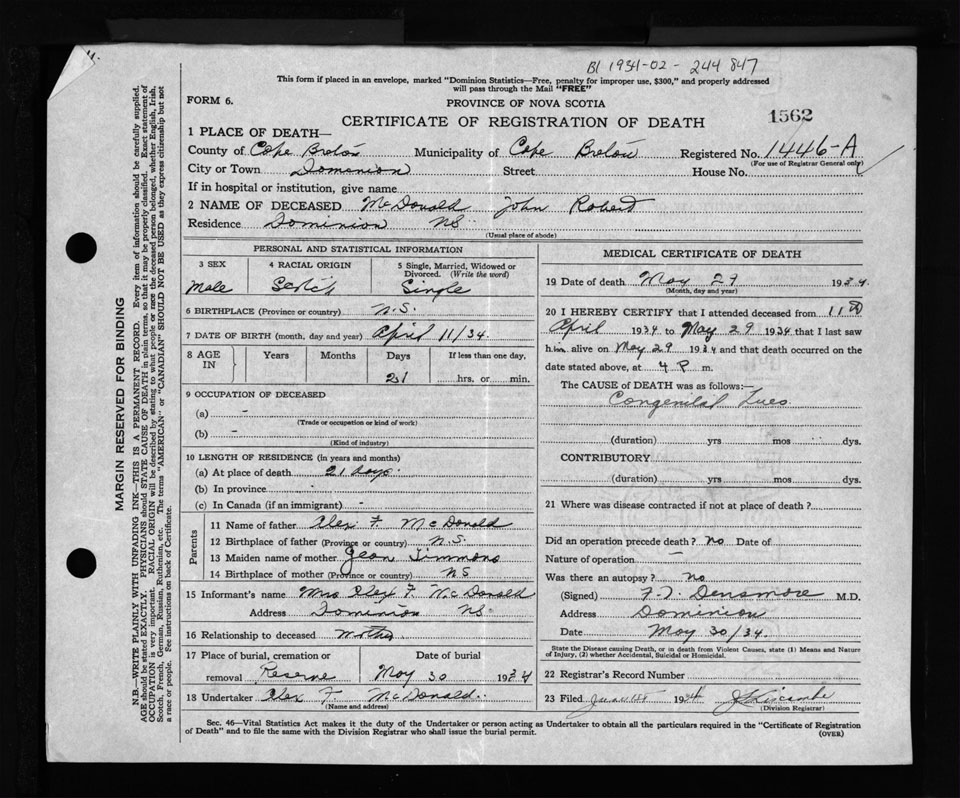 B1 1934-02-244847
This form if placed in an envelope, marked "Dominion Statistics—Free, penalty for improper use, $300," and properly addressed
will pass through the Mail "FREE"
FORM 6.
PROVINCE OF NOVA SCOTIA
1562
CERTIFICATE OF REGISTRATION OF DEATH
1 PLACE OF DEATH—
County of Cape Breton Municipality of Cape Breton Registered No. 1446-A
(For use of Registrar General only)
City or Town Dominion Street House No.
If in hospital or institution, give name
2 NAME OF DECEASED McDonald John Robert
Residence Dominion NS
(Usual place of abode)
PERSONAL AND STATISTICAL INFORMATION
3 SEX Male
4 RACIAL ORIGIN Scotch
5 Single, Married, Widowed or Divorced. (Write the word) Single
6 BIRTHPLACE (Province or country) N.S.
7 DATE OF BIRTH (month, day and year) April 11/34
8 AGE IN Years Months Days If less than one day,
21 hrs. or min.
9 OCCUPATION OF DECEASED
(a) -
(Trade or occupation or kind of work)
(b) -
(Kind of industry)
10 LENGTH OF RESIDENCE (in years and months)
(a) At place of death 21 days.
(b) In province -
(c) In Canada (if an immigrant) -
Parents
11 Name of father Alex F. McDonald
12 Birthplace of father (Province or country) N.S.
13 Maiden name of mother Jean Timmons
14 Birthplace of mother (Province or country) NS
15 Informant's name Mrs Alex F. McDonald
Address Dominion NS.
16 Relationship to deceased Mother
17 Place of burial, cremation or removal Reserve
Date of burial May 30 1934
18 Undertaker Alex F. McDonald
(Name and address)
MEDICAL CERTIFICATE OF DEATH
19 Date of death May 29 1934.
(Month, day and year)
20 I HEREBY CERTIFY that I attended deceased from 11th
April 1934 to May 29 1934 that I last saw
him alive on May 29 1934 and that death occurred on the
date stated above, at 4 P. m.
The CAUSE OF DEATH was as follows:—
Congenital Lues
(duration) yrs mos dys.
CONTRIBUTORY
(duration) yrs mos dys.
21 Where was disease contracted if not at place of death?
Did an operation precede death? no Date of
Nature of operation —
Was there an autopsy? no
(Signed) Densmore M.D.
Address Dominion
Date May 30/34.
State the Disease causing Death, or in death from Violent Causes, state (1) Means and Nature
of Injury, (2) whether Accidental, Suicidal or Homicidal.
22 Registrar's Record Number
23 Filed 1934
(Division Registrar)
Sec. 46—Vital Statistics Act makes it the duty of the Undertaker or person acting as Undertaker to obtain all the particulars required in the "Certificate of Registration
of Death" and to file the same with the Division Registrar who shall issue the burial permit. (OVER)
MARGIN RESERVED FOR BINDING
N.B.—WRITE PLAINLY WITH UNFADING INK—THIS IS A PERMANENT RECORD. Every item of information should be carefully supplied.
AGE should be stated EXACTLY. PHYSICIANS should STATE CAUSE OF DEATH in plain terms, so that it may be properly classified. Exact statement of
OCCUPATION is very important. RACIAL ORIGIN will be described by stating to what people or race the deceased person belonged, whether English, Irish,
Scotch, French, German, Russian, Ruthenian, etc. The terms "AMERICAN" or "CANADIAN" SHOULD NOT BE USED as they express citizenship but not
a race or people. See instructions on back of Certificate.